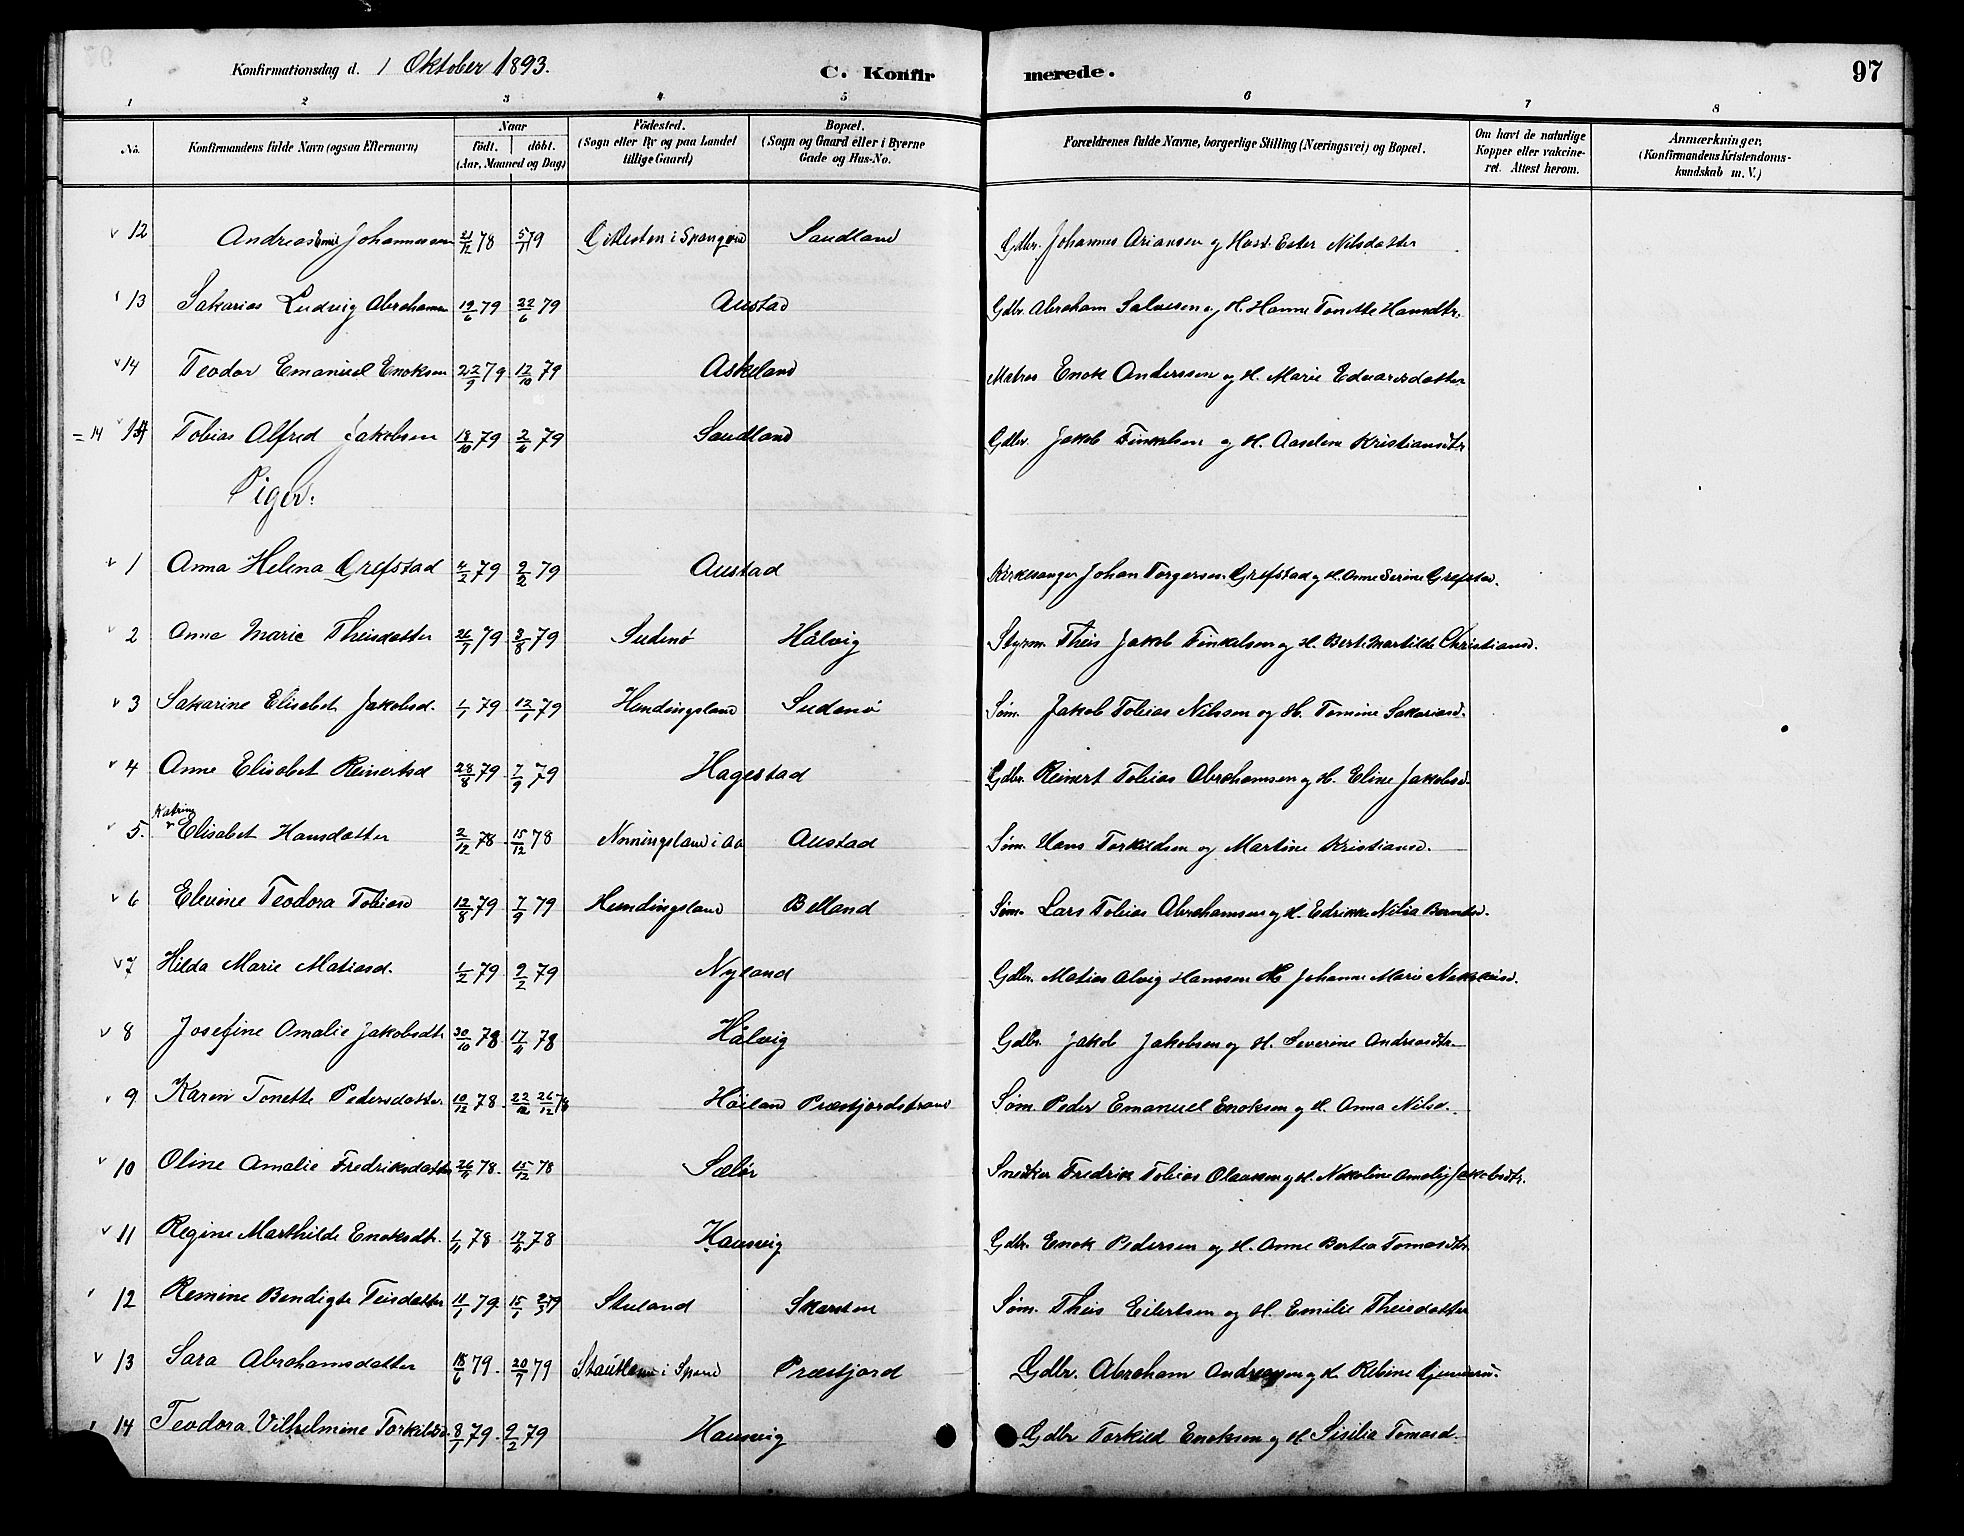 Konfirmationsdag d. 1 Oktober 1893. C. Konfirmerede. 97
1 2 3 4 5 6 7 8
No. Konfirmandens fulde Navn (ogsaa Efternavn) Naar födt. döbt. (Aar, Maaned og Dag) Födested. (Sogn eller By og paa Landet tillige Gaard) Bopæl. (Sogn og Gaard eller i Byerne Gade og Hus-No. Forældrenes fulde Navne, borgerlige Stilling (Næringsvei) og Bopæl. Om havt de naturlige Kopper eller vakcineret. Attest herom. Anmærkninger. (Konfirmandens Kristendomskundskab m. V.)
12 Andreas Emil Johannessen 21/12 78 5/1 79 i Spangereid Saudland Gdbr. Johannes Ariansen og Hust. Ester Nilsdatter
13 Sakarias Ludvig Abrahamsen 19/6 79 22/6 79 Austad Gdbr. Abraham Salvesen og H. Hanne Tonette Hansdtr.
14 Teodor Emanuel Enoksen 22/9 79 12/10 79 Askeland Matros Enok Anderssen og H. Marie Edvardsdatter
= 14 Tobias Alfred Jakobsen 18/10 79 2/11 79 Saudland Gdbr. Jakob Finkelsen og H. Aaselene Kristiansdtr
Piger:
1 Anna Helena Grefstad 4/2 79 9/2 79 Austad Kirkesanger Johan Torgersen Grefstad og H. Anne Serine Grefstad.
2 Anna Marie Theisdatter 26/7 79 3/8 79 Sudenø Hålvig Styrm. Theis Jakob Finkelsen og H. Bert. Martilde Christiansd.
3 Sakarine Elisabet Jakobsd. 1/1 79 12/1 79 Hundingsland Sudenø Søm. Jakob Tobias Nilssen og H. Tomine Sakariasd.
4 Anne Elisabet Reinertsd 28/8 79 7/9 79 Hagestad Gdbr. Reinert Tobias Abrahamsen og H. Eline Jakobsd.
5. Katrine Elisabet Hansdatter 2/12 78 15/12 78 Nonningsland i Aa Austad Søm. Hans Torkildsen og Martine Kristiansd.
6 Elevine Teodora Tobiasd 12/8 79 7/9 79 Hundingsland Belland Søm. Lars Tobias Abrahamsen og H. Edrikke Nilia Berntsd.
7 Hilda Marie Matiasd. 1/2 79 9/2 79 Nyland Gdbr. Matias Alvig Hanssen H Johanne Marie
8 Josefine Amalie Jakobsdtr 30/10 78 17/11 78 Hålvig Gdbr. Jakob Jakobsen og H. Severine Andreasdtr.
9 Karen Tonette Pedersdatter. 10/12 78. 22/12 26/12 78 Höiland Præstfjordstrand Søm. Peder Emanuel Enoksen og H. Anna Nilsd.
10 Oline Amalie Fredriksdatter 26/11 78. 15/12 78 Sælør Snedker Fredrik Tobias Olaussen og H. Nekoline Amalie Jakobsdtr.
11 Regine Marthilde Enoksdtr. 1/11 78 17/11 78 Hausvig Gdbr. Enok Pedersen og H. Anne Bertea Tomasdtr
12 Remine Bendigte Teisdatter 11/1 79. 15/1 2/3 79 Stuland Skarsten Søm. Theis Eilertsen og H. Emilie Theisdatter
13 Sara Abrahamsdatter 18/6 79. 20/7 79 i Spand Præstfjord Gdbr. Abraham Andreassen og H. Rebine
14 Teodora Vilhelmine Torkildsd 8/1 79. 9/2 79 Hausvig Gdbr Torkild Enoksen og H. Sisilia Tomasd.